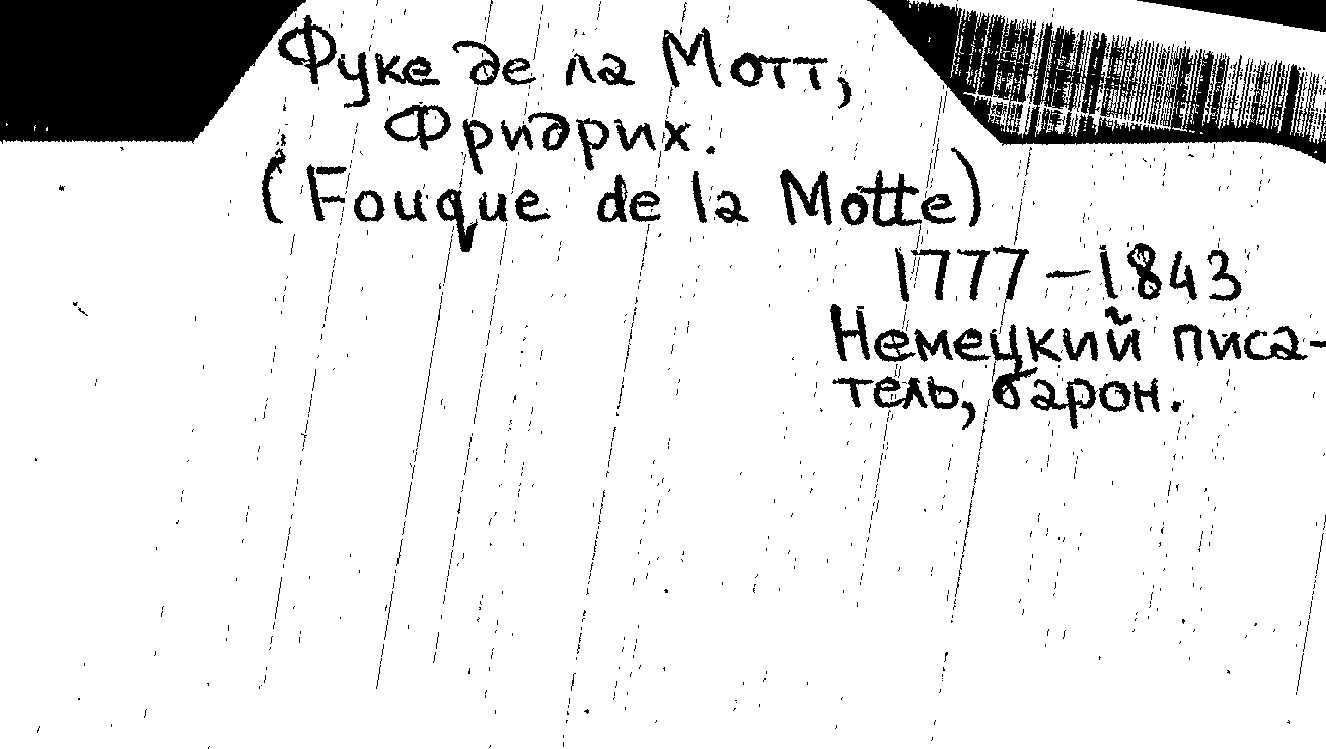 Фуке де ла Мотт,
Фридрих.
(Fouque de la Motte)
1777–1843
Немецкий писа-
тель, барон.